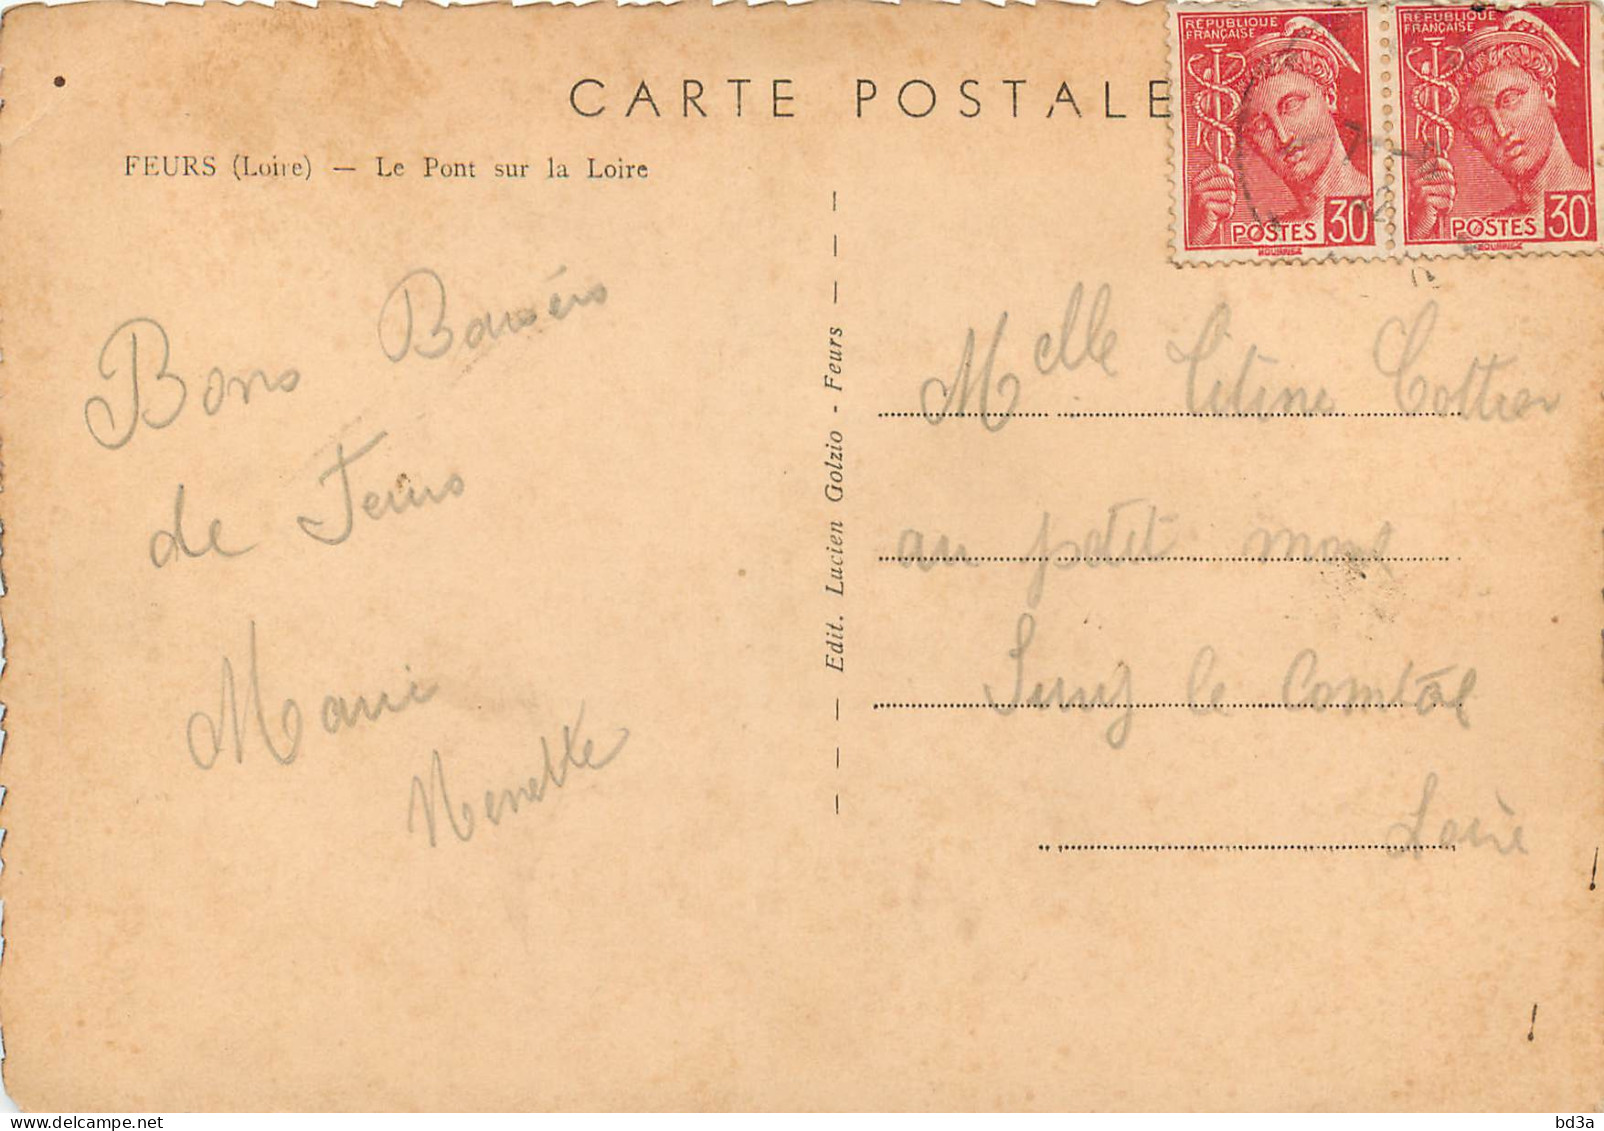 CARTE POSTALE
FEURS (Loire) — Le Pont sur la Loire
RÉPUBLIQUE
FRANÇAISE
POSTES 30c
RÉPUBLIQUE
FRANÇAISE
POSTES 30c
Bons Baisers
de Feurs
Marie
Nenette
Edit. Lucien Golzio - Feurs
Melle Titine Cottier
au petit mont
Sury le Comtal
Loire
delcampe.net
bd3a